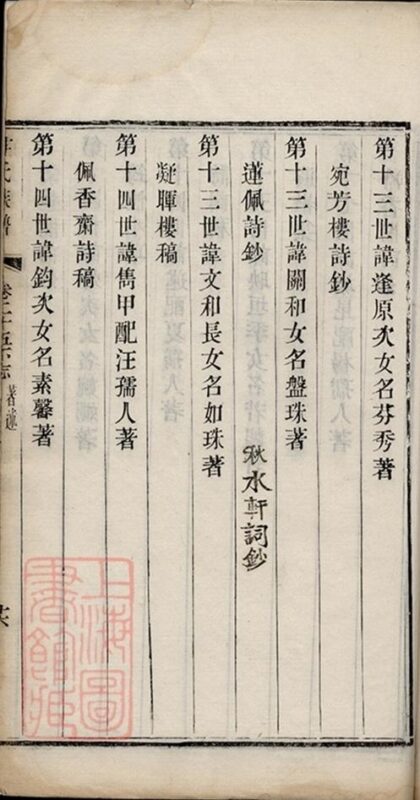 第十三世諱逢原次女名芬秀著
宛芳樓詩鈔
第十三世諱關和女名盤珠著
蓮佩詩鈔
秋水軒詞鈔
第十三世諱文和長女名如珠著
凝暉樓稿
第十四世諱雋甲配汪孺人著
佩香齋詩稿
第十四世諱鈞次女名素馨著
氏族譜
著述
上海圖書館藏